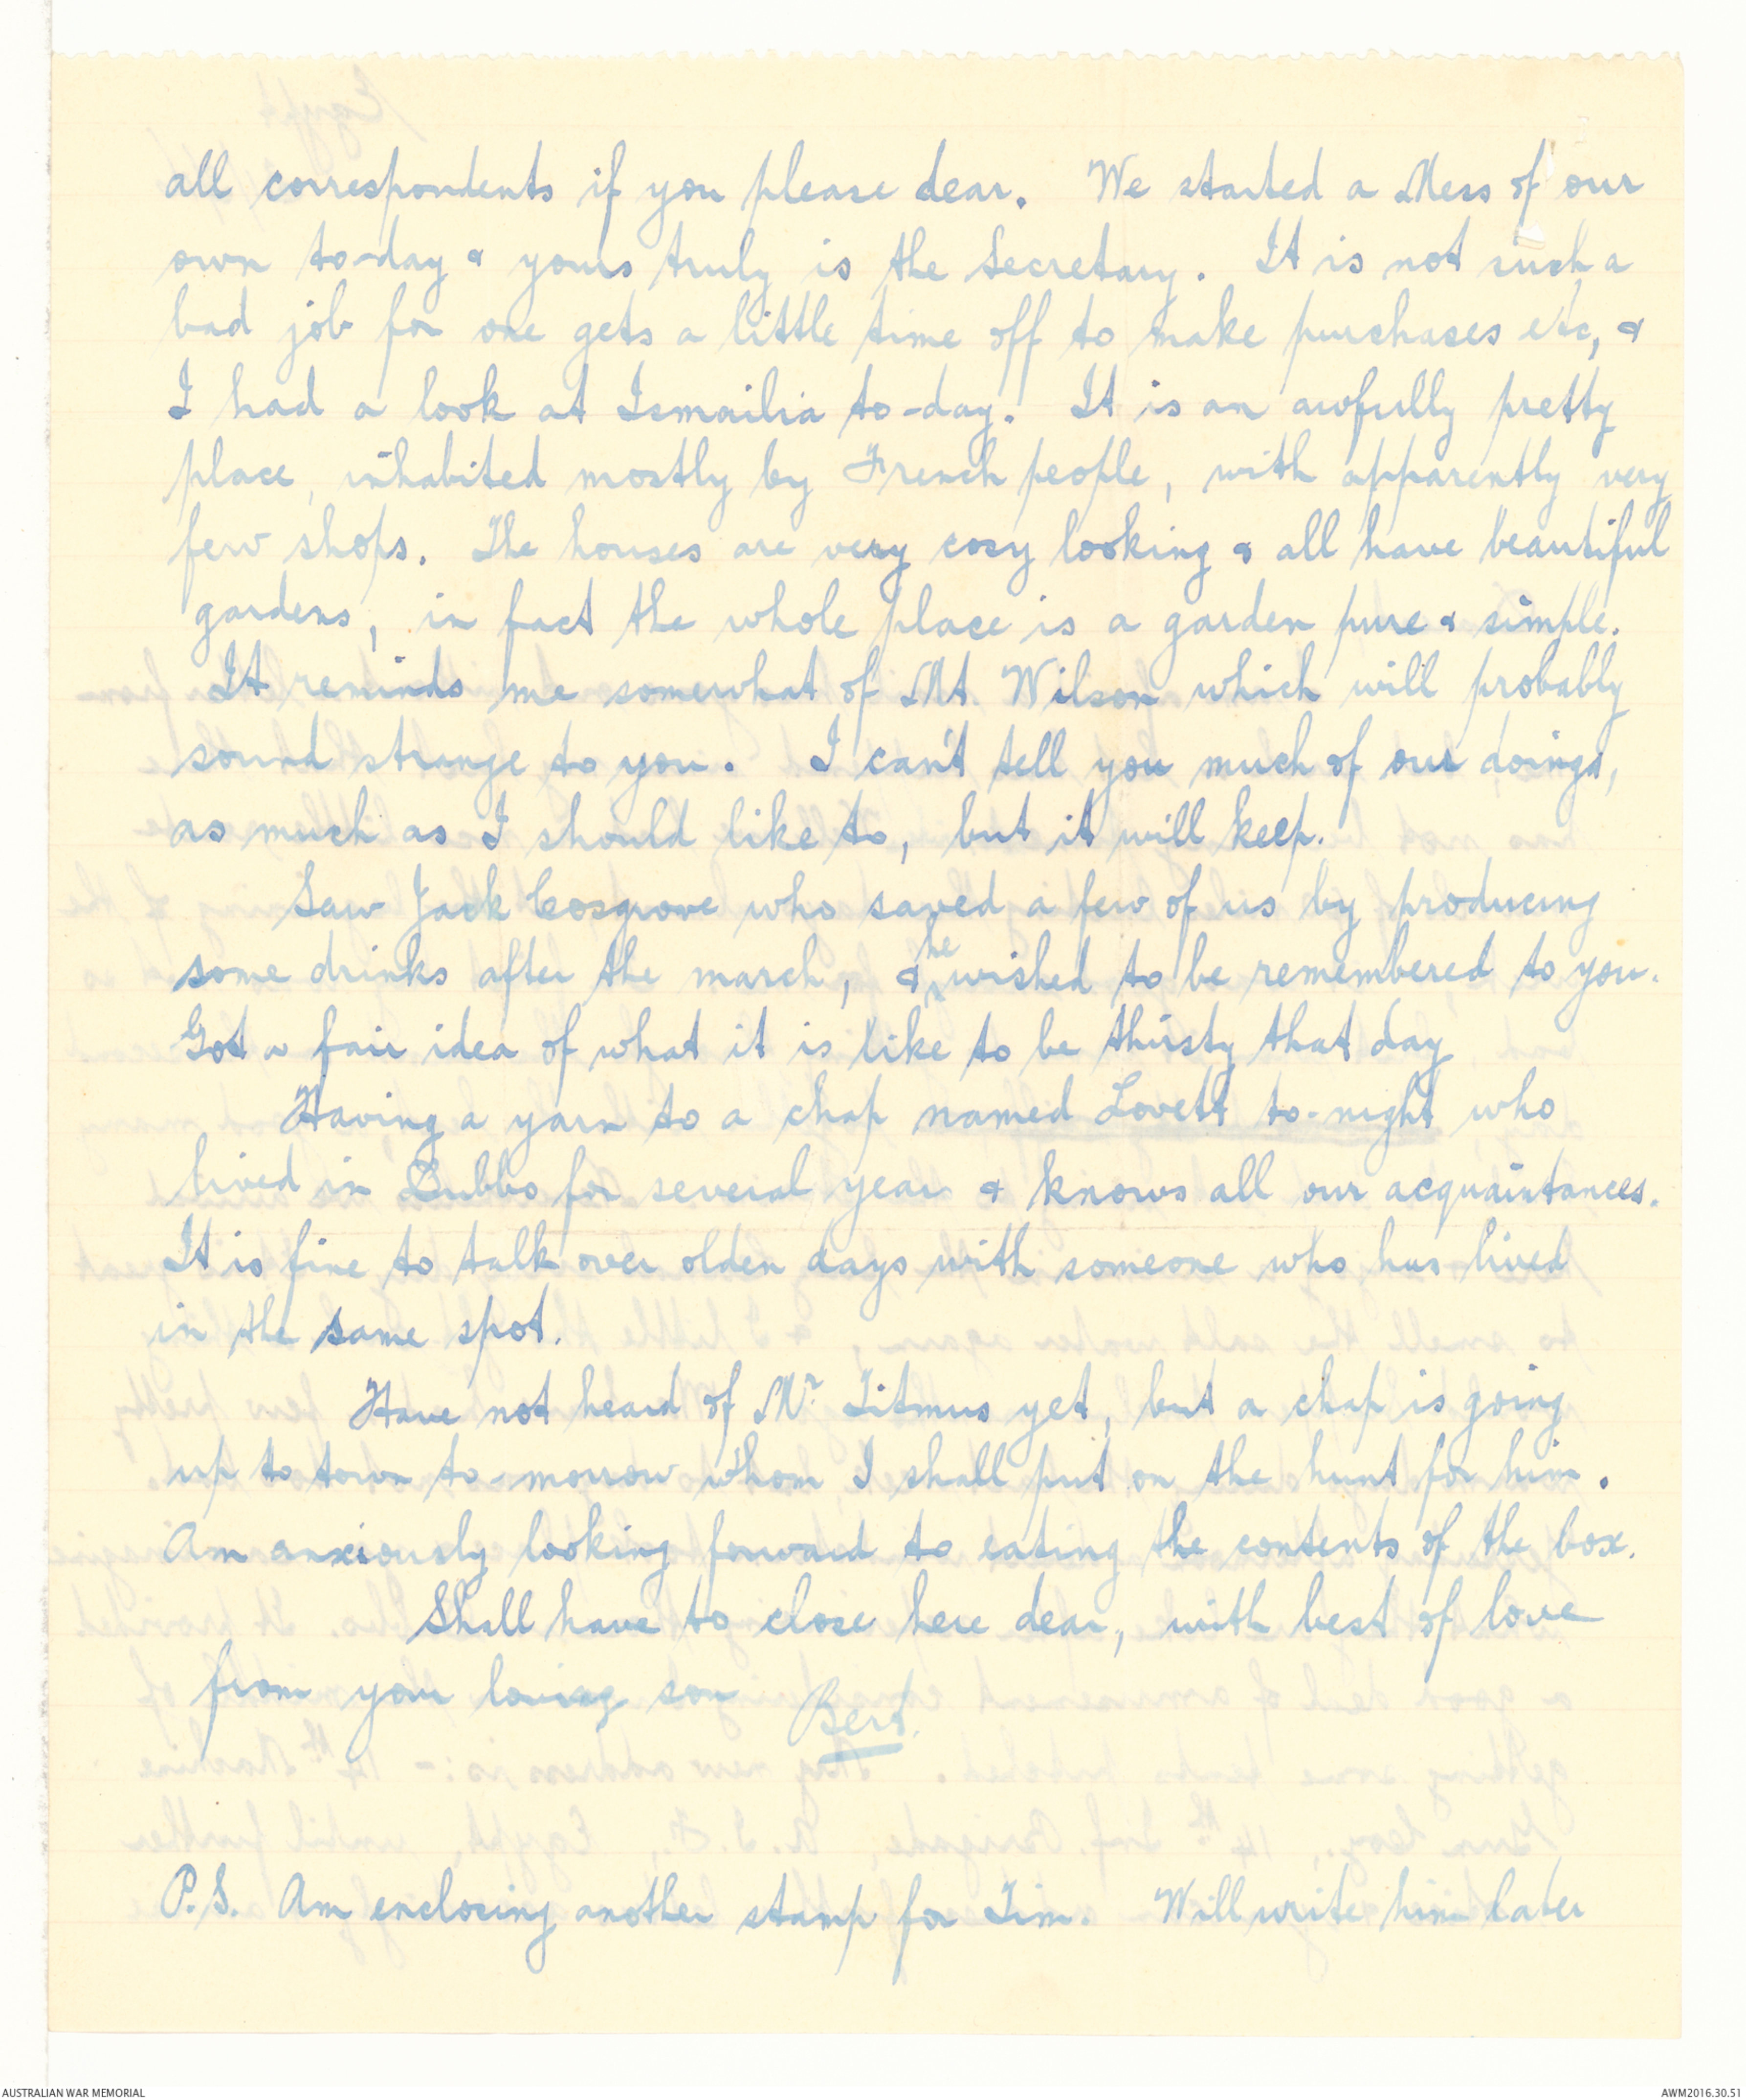 all correspondents if you please dear. We started a Mess of our
own to-day & yours truly is the Secretary. It is not such a
bad job for one gets a little time off to make purchases etc, &
I had a look at Ismailia to-day. It is an awfully pretty
place, inhabited mostly by French people, with apparently very
few shops. The houses are very cosy looking & all have beautiful
gardens, in fact the whole place is a garden pure & simple.
It reminds me somewhat of Mt. Wilson which will probably
sound strange to you. I can't tell you much of our doings,
as much as I should like to, but it will keep.
Saw Jack Cosgrove who saved a few of us by producing
some drinks after the march, & he wished to be remembered to you.
Got a fair idea of what it is like to be thirsty that day
Having a yarn to a chap named Lovett to-night who
lived in Dubbo for several years & knows all our acquaintances.
It is fine to talk over olden days with someone who has lived
in the same spot.
Have not heard of Mr. Titmus yet, but a chap is going
up to town to-morrow whom I shall put on the hunt for him.
Am anxiously looking forward to eating the contents of the box.
Shall have to close here dear, with best of love
from your loving son Bert.
P.S. Am enclosing another stamp for Tim. Will write him later
AUSTRALIAN WAR MEMORIAL
AWM2016.30.51